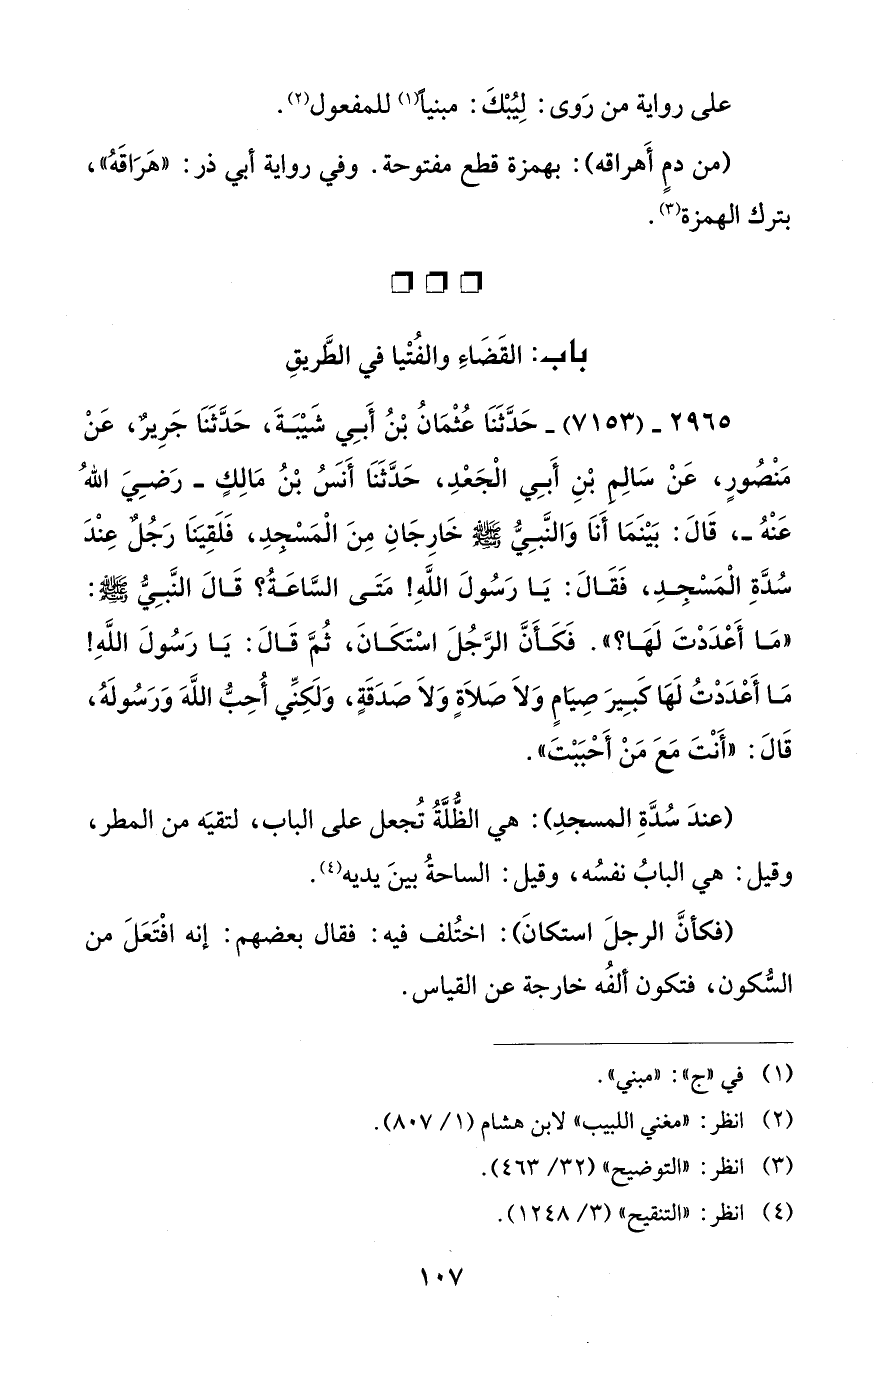 على رواية من رَوى: لِيُبْكَ: مبنياً(١) للمفعول(٢).
(من دمٍ أَهراقه): بهمزة قطع مفتوحة. وفي رواية أبي ذر: «هَرَاقَهُ»،
بترك الهمزة(٣).
باب: القَضَاءِ والفُتْيا في الطَّريقِ
٢٩٦٥ ـ (٧١٥٣) ـ حَدَّثَنَا عُثْمَانُ بْنُ أَبِي شَيْبَةَ، حَدَّثَنَا جَرِيرٌ، عَنْ
مَنْصُورٍ، عَنْ سَالِمِ بْنِ أَبِي الْجَعْدِ، حَدَّثَنَا أَنَسُ بْنُ مَالِكٍ ـ رَضِيَ اللهُ
عَنْهُ ـ، قَالَ: بَيْنَمَا أَنَا وَالنَّبِيُّ ﷺ خَارِجَانِ مِنَ الْمَسْجِدِ، فَلَقِيَنَا رَجُلٌ عِنْدَ
سُدَّةِ الْمَسْجِدِ، فَقَالَ: يَا رَسُولَ اللَّهِ! مَتَى السَّاعَةُ؟ قَالَ النَّبِيُّ ﷺ:
«مَا أَعْدَدْتَ لَهَا؟». فَكَأَنَّ الرَّجُلَ اسْتَكَانَ، ثُمَّ قَالَ: يَا رَسُولَ اللَّهِ!
مَا أَعْدَدْتُ لَهَا كَبِيرَ صِيَامٍ وَلاَ صَلاَةٍ وَلاَ صَدَقَةٍ، وَلَكِنِّي أُحِبُّ اللَّهَ وَرَسُولَهُ،
قَالَ: «أَنْتَ مَعَ مَنْ أَحْبَبْتَ».
(عندَ سُدَّةِ المسجدِ): هي الظُّلَّةُ تُجعل على الباب، لتقيَه من المطر،
وقيل: هي البابُ نفسُه، وقيل: الساحةُ بينَ يديه(٤).
(فكأنَّ الرجلَ استكانَ): اختُلف فيه: فقال بعضهم: إنه افْتَعَلَ من
السُّكون، فتكون ألفُه خارجة عن القياس.
(١) في «ج»: «مبني».
(٢) انظر: «مغني اللبيب» لابن هشام (١/ ٨٠٧).
(٣) انظر: «التوضيح» (٣٢/ ٤٦٣).
(٤) انظر: «التنقيح» (٣/ ١٢٤٨).
١٠٧